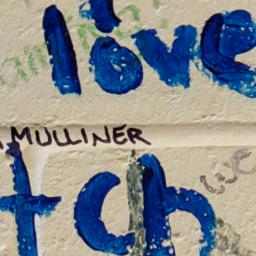 live
MULLINER
tch